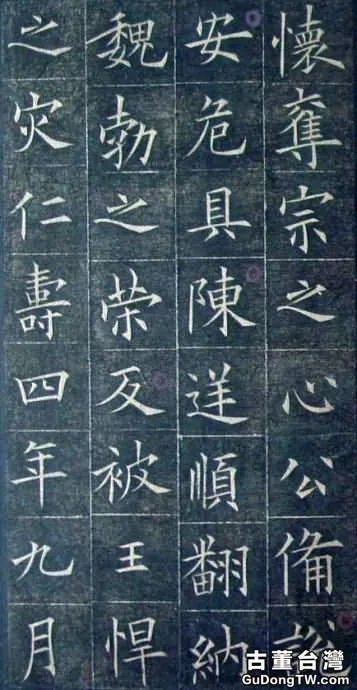 懷奪宗之心公備說
安危具陳逆順翻納
魏勃之荣反被王悍
之灾仁壽四年九月
古董台灣
GuDongTW.com